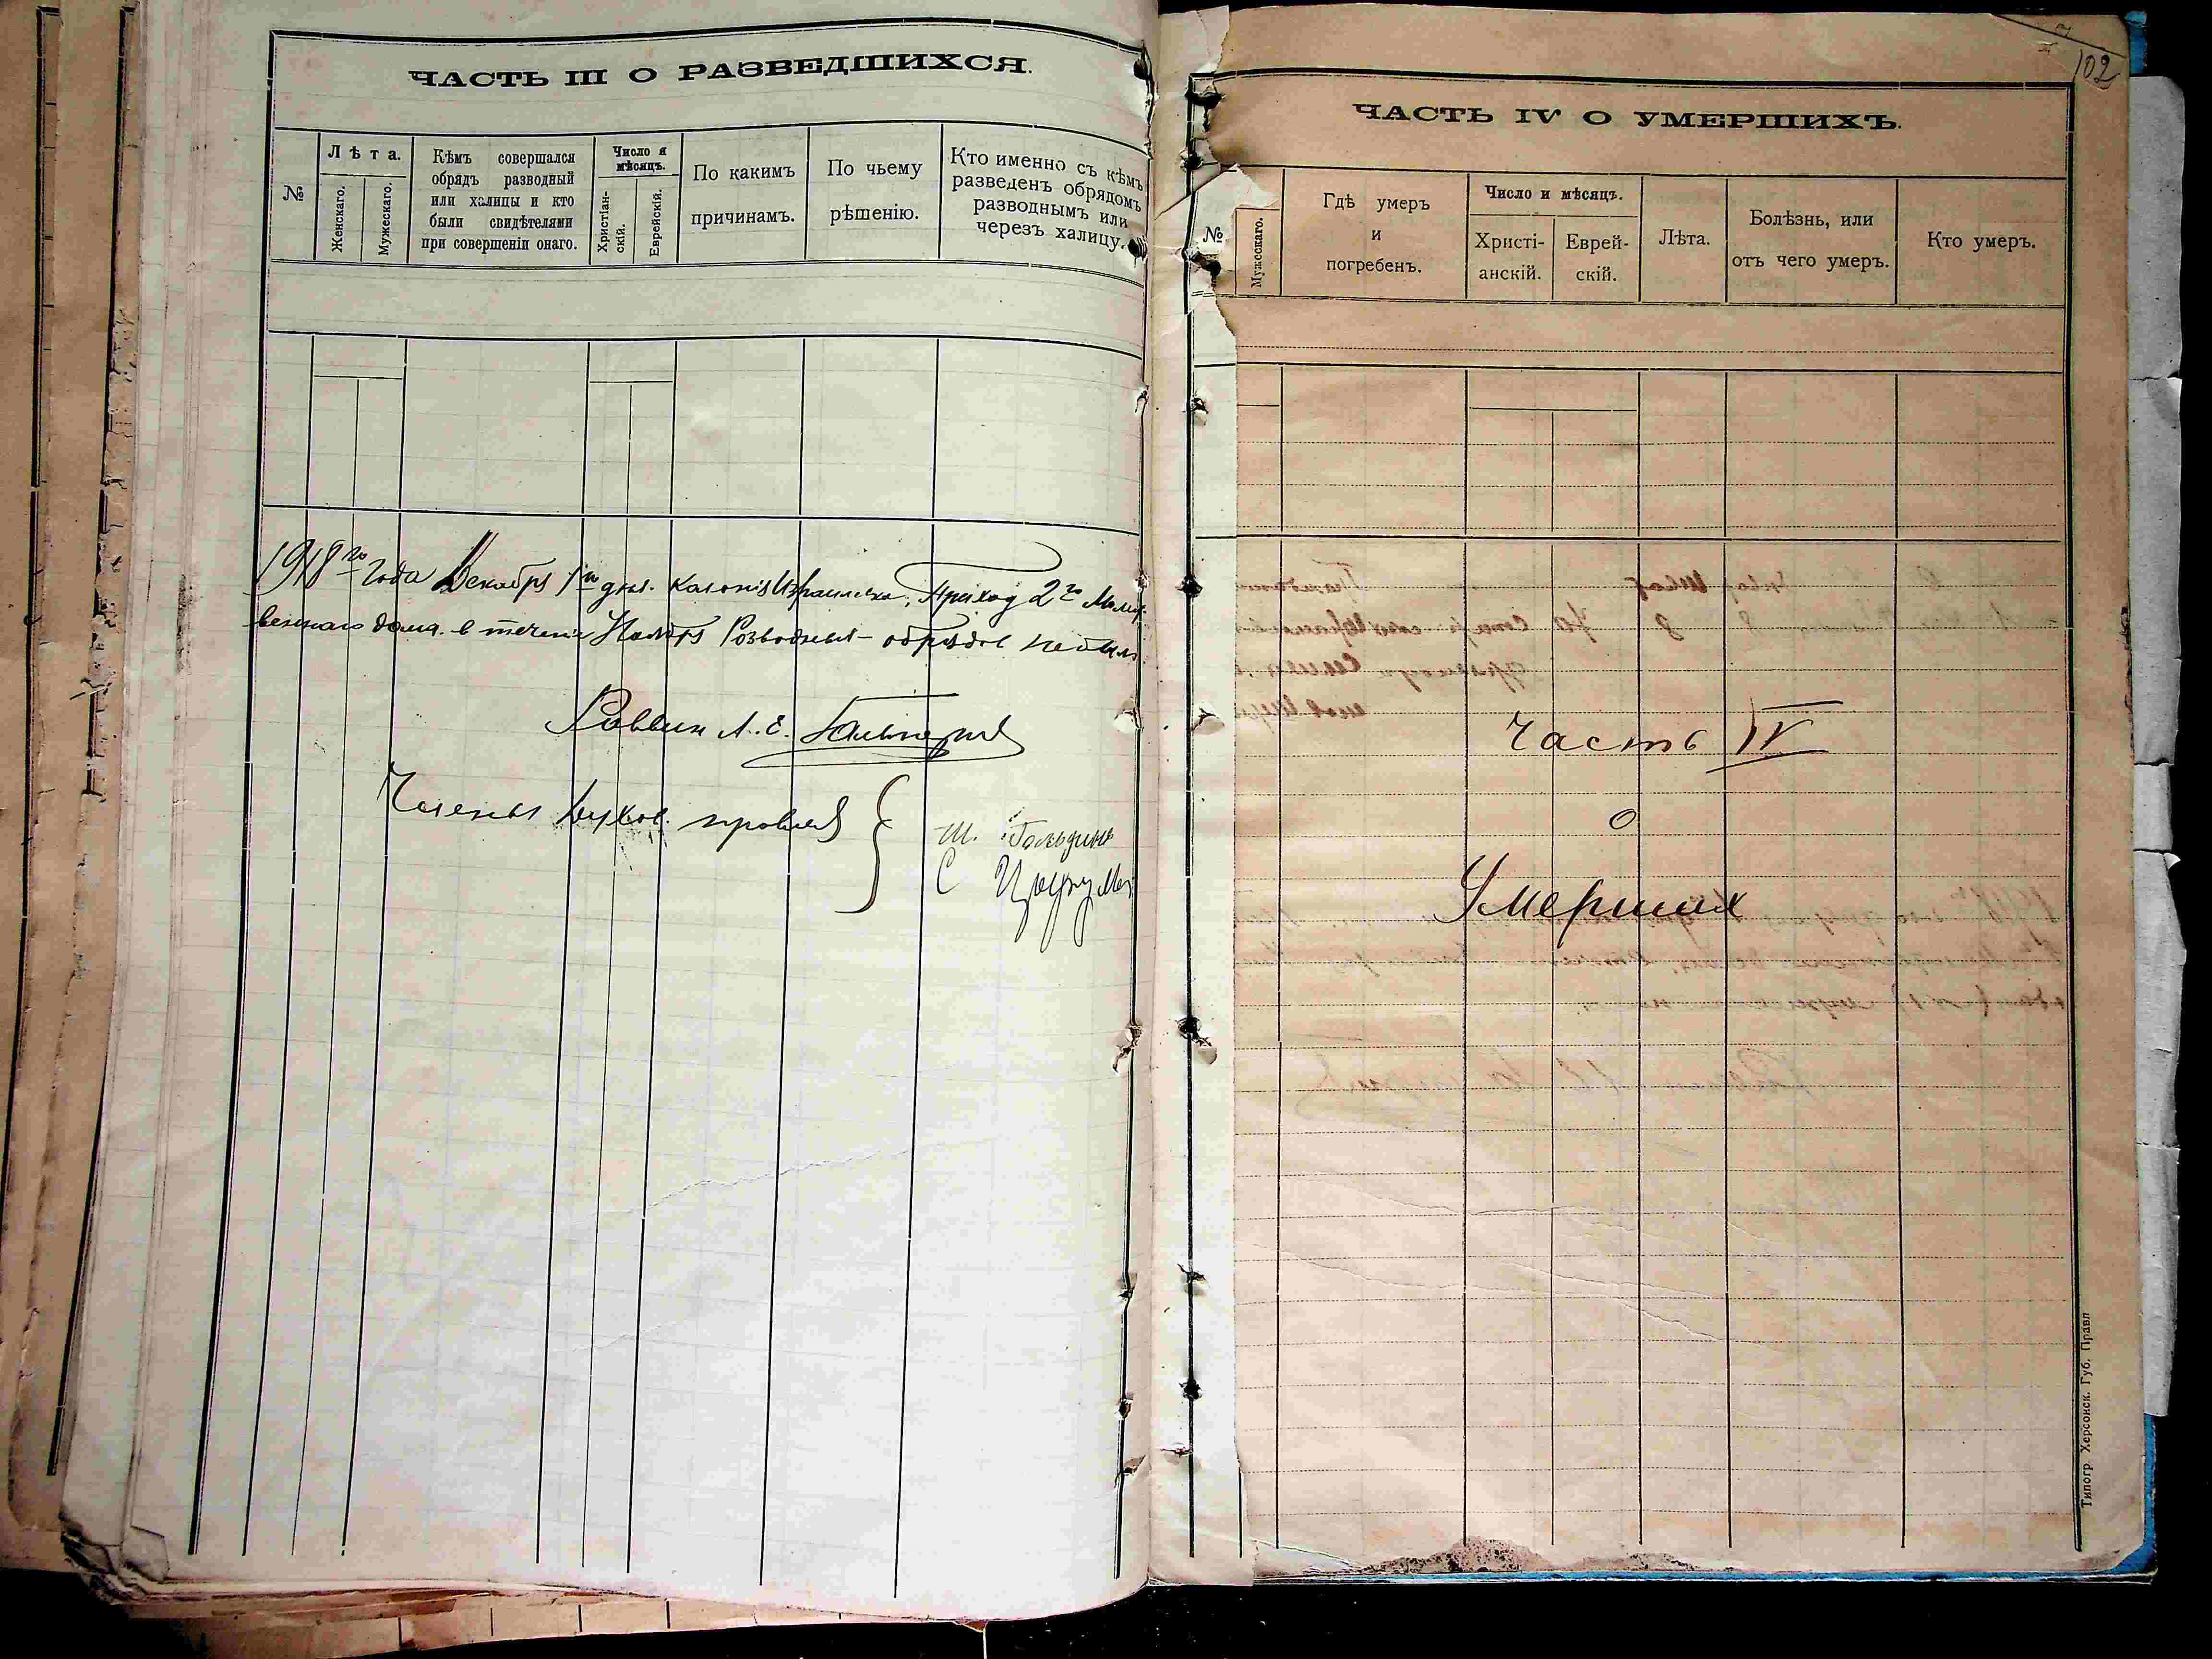 ЧАСТЬ III О РАЗВЕДШИХСЯ.
№
Лѣта.
Женскаго.
Мужескаго.
Кѣмъ совершался
обрядъ разводный
или халицы и кто
были свидѣтелями
при совершеніи онаго.
Число и
мѣсяцъ.
Христіан-
скій.
Еврейскій.
По какимъ
причинамъ.
По чьему
рѣшенію.
Кто именно съ кѣмъ
разведенъ обрядомъ
разводнымъ или
черезъ халицу.
1918 го года Декабря 1 го дня. Колонія Израилевка, Приход 2 го Молит
веннаго дома. в течение Ноября Розводных обрядов не было
Раввин Л. Е. Гальперин
Члены духов. правлен
Ш. Гольдинъ
С
102
ЧАСТЬ IV О УМЕРШИХЪ.
№
Мужескаго.
Гдѣ умеръ
и
погребенъ.
Число и мѣсяцъ.
Христі-
анскій.
Еврей-
скій.
Лѣта.
Болѣзнь, или
отъ чего умеръ.
Кто умеръ.
Часть IV
о
Умерших
Типогр. Херсонск. Губ. Правл